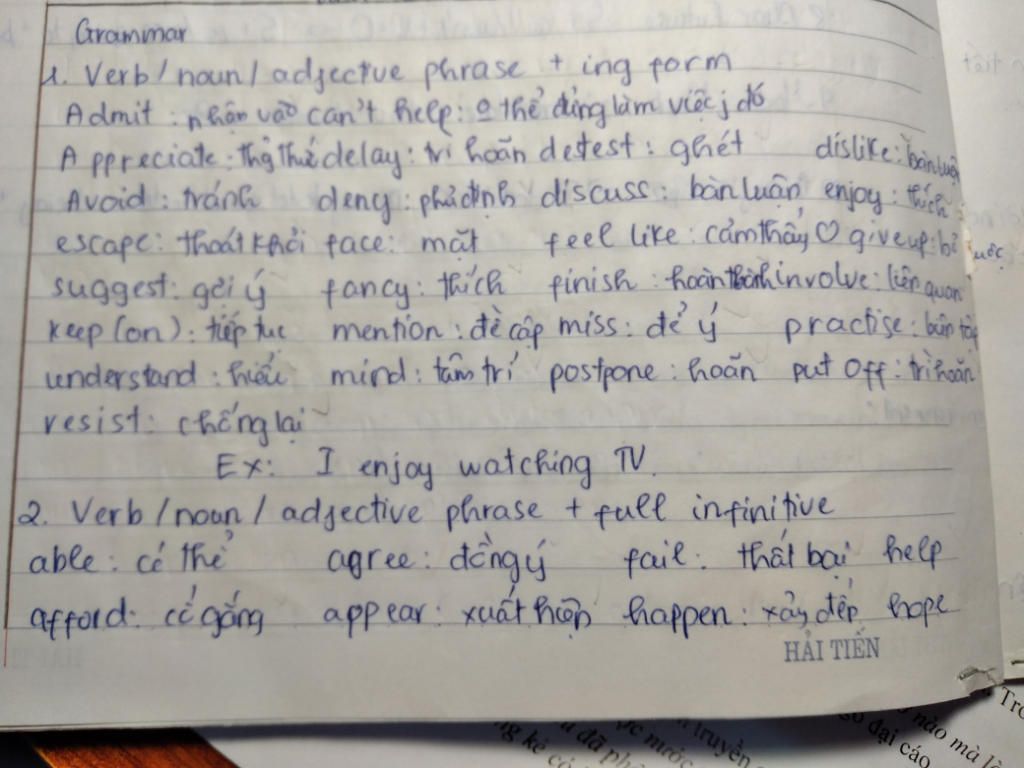 Grammar
1. Verb/noun/adjective phrase + ing form
Admit: nhận vào can't help: o thể đừng làm việc j đó
Appreciate: delay: trì hoãn detest: ghét dislike: bàn luận
Avoid: tránh deny: phủ định discuss: bàn luận enjoy: thích
escape: thoát khỏi face: mặt feel like: cảm thấy ♡ give up: bỏ cuộc
suggest: gợi ý fancy: thích finish: hoàn thành involve: liên quan
keep (on): tiếp tục mention: đề cập miss: để ý practise:
understand: hiểu mind: tâm trí postpone: hoãn put off: trì hoãn
resist: chống lại
Ex: I enjoy watching TV.
2. Verb/noun/adjective phrase + full infinitive
able: có thể agree: đồng ý fail: thất bại help
afford: cố gắng appear: xuất hiện happen: xảy đến hope
HẢI TIẾN